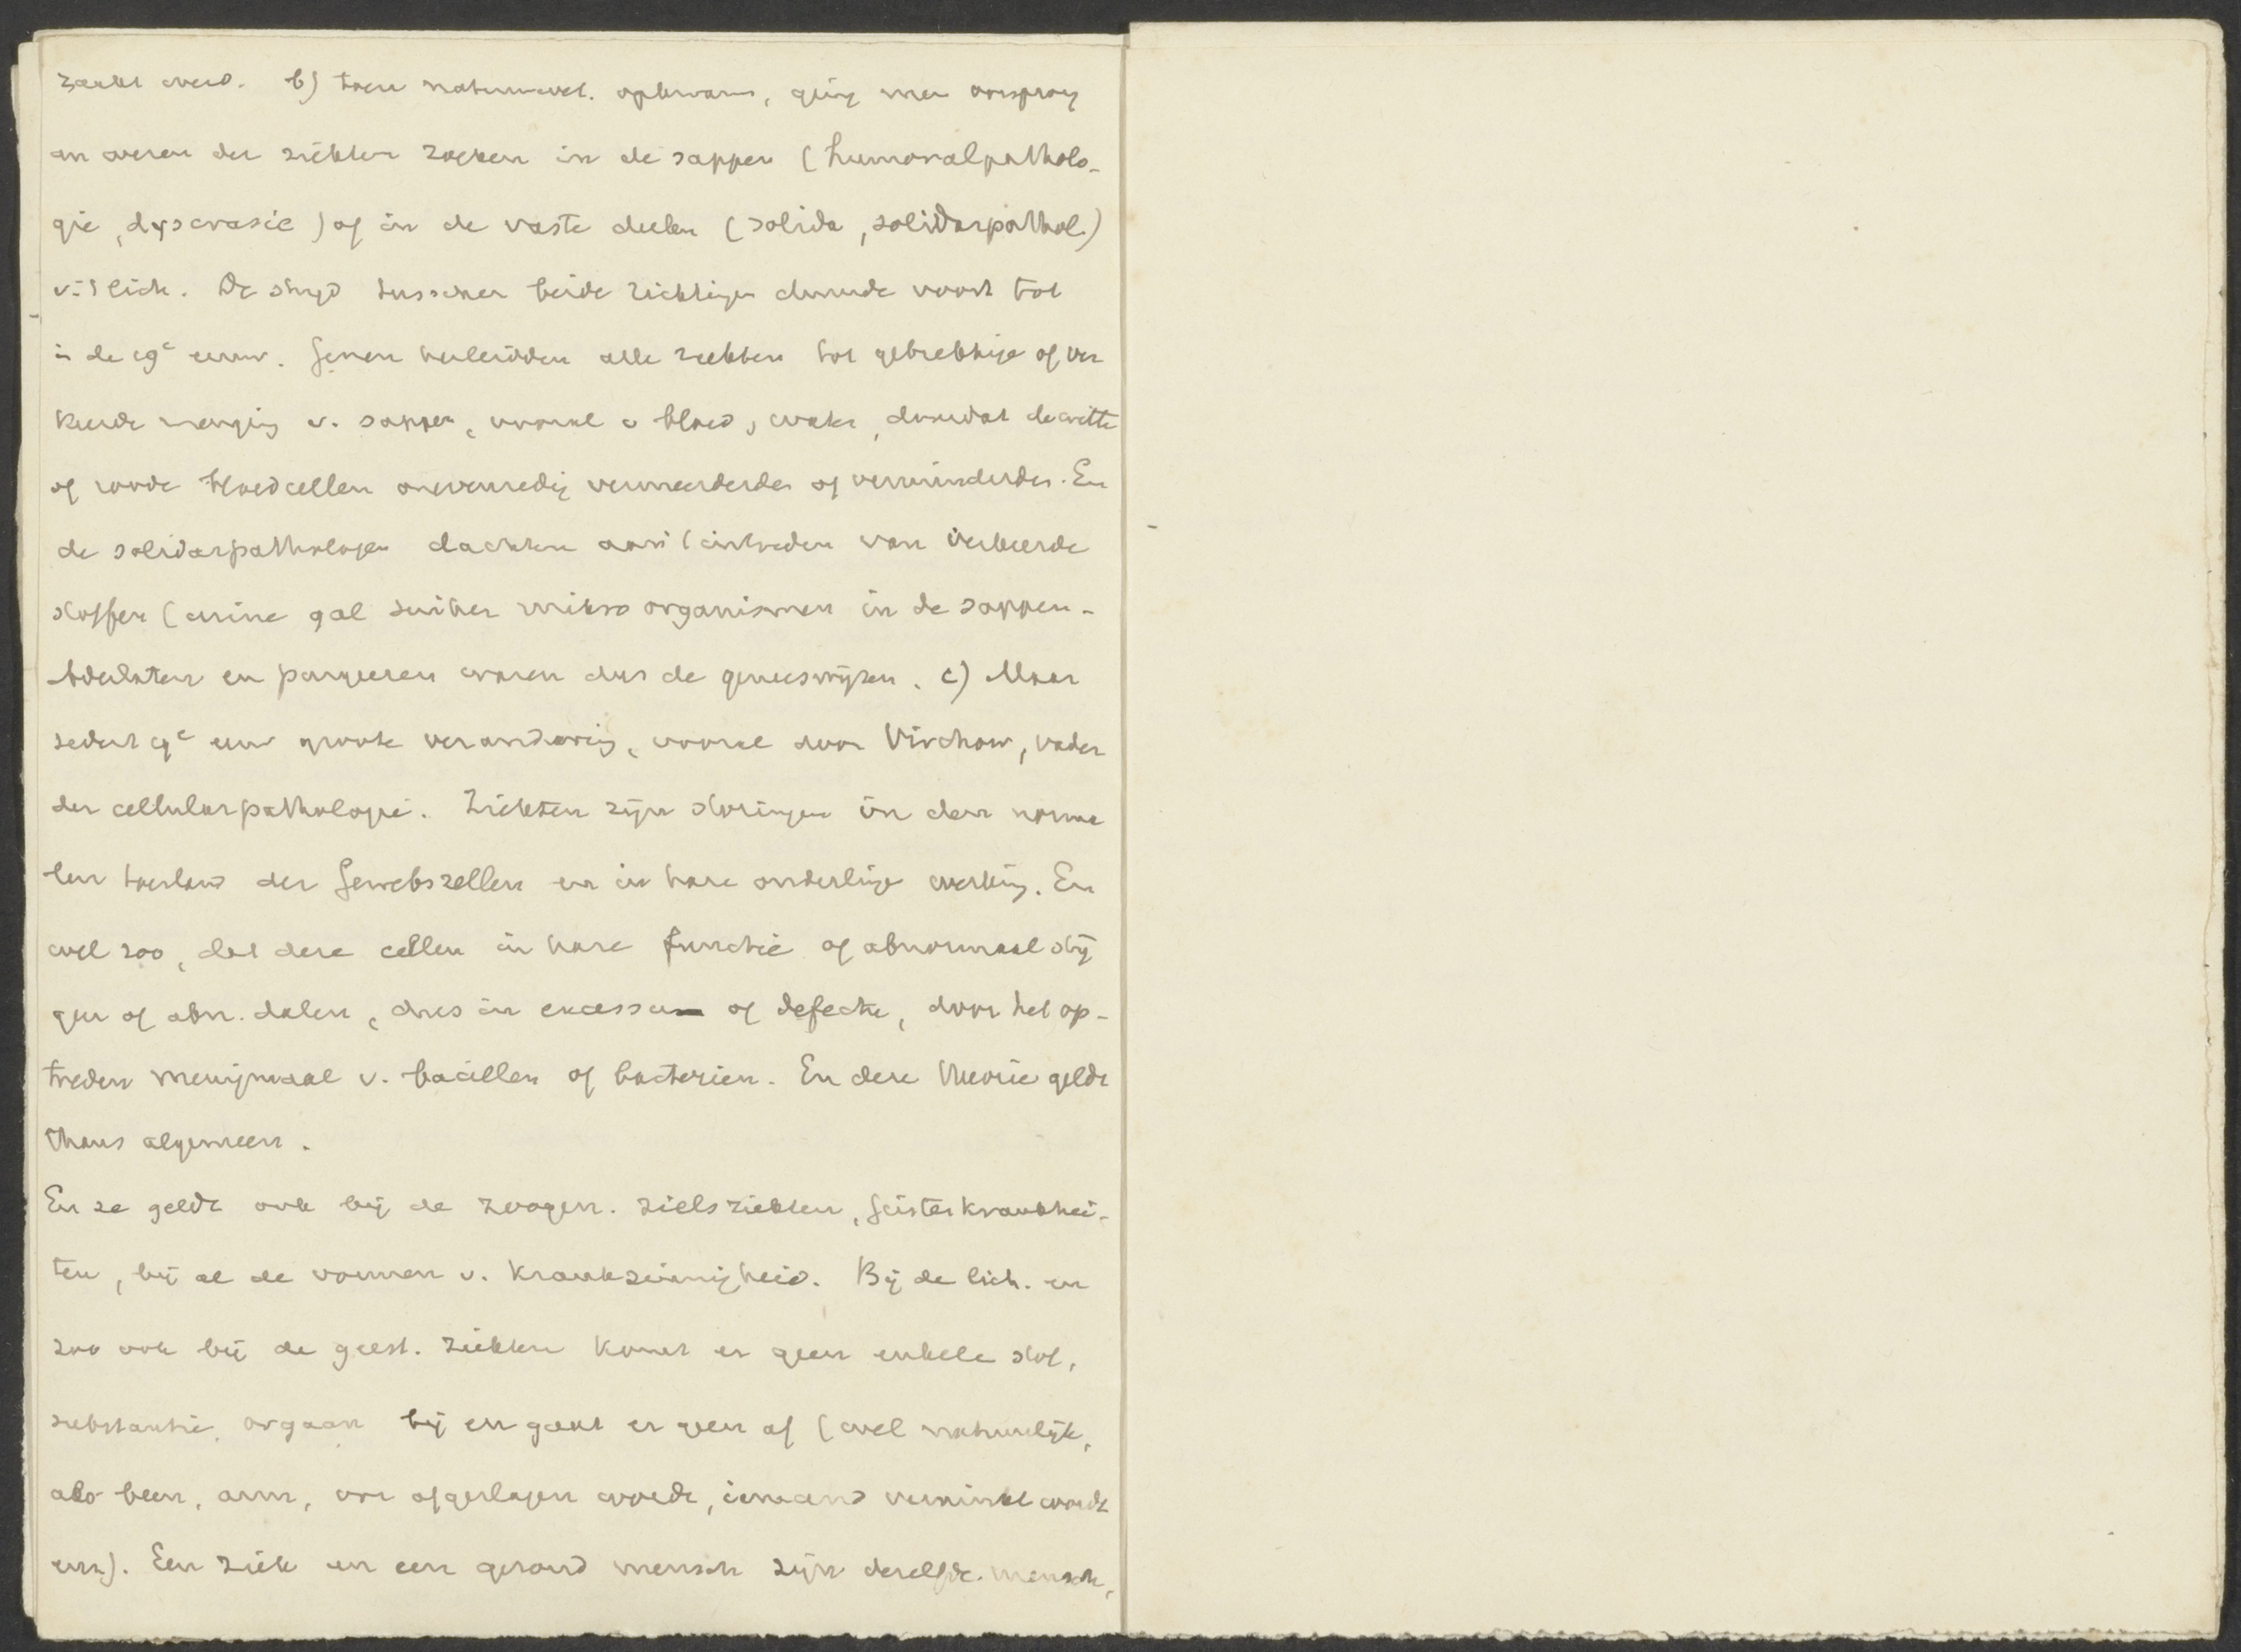 zaakt werd. b) toen natuurwet. opkwam, ging men oorsprong
en wezen der ziekten zoeken in de sappen (humoralpatholo-
gie, dyscrasie) of in de vaste deelen (solida, solidarpathol.)
v. 't lich. De strijd tusschen beide richtingen duurde voort tot
in de 19e eeuw. Genen herleidden alle ziekten tot gebrekkige of ver
keerde menging v. sappen, vooral v bloed, water, doordat de witte
of roode bloedcellen onevenredig vermeerderden of verminderden. En
de solidarpathologen dachten aan 't intreden van verkeerde
stoffen (urine gal suiker mikroorganismen in de sappen -
Aderlaten en purgeeren waren dus de geneeswijzen. c) Maar
sedert 19e eeuw groote verandering, vooral door Virchow, vader
der cellularpathologie. Ziekten zijn storingen in den norma
len toestand der Gewebszellen en in hare onderlinge werking. En
wel zoo, dat deze cellen in hare functie of abnormaal stij
gen of abn. dalen, dus in excessu of defectu, door het op-
treden menigmaal v. bacillen of bacteriën. En deze theorie geldt
thans algemeen.
En ze geldt ook bij de zoogen. zielsziekten, Geisteskrankhei-
ten, bij al de vormen v. krankzinnigheid. Bij de lich. en
zoo ook bij de geest. ziekten komt er geen enkele stof,
substantie, orgaan bij en gaat er geen af (wel natuurlijk,
als been, arm, oor afgeslagen wordt, iemand verminkt wordt
enz). Een ziek en een gezond mensch zijn dezelfde mensch,